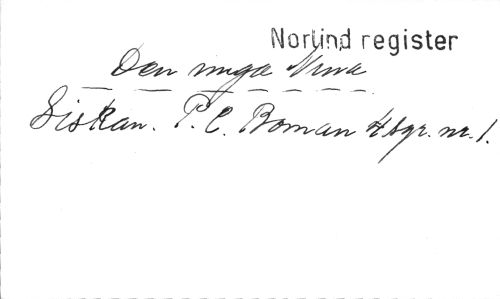 Norlind register
Den unga Nina
Siskan. P. C. Boman 4 sgr. nr. 1.